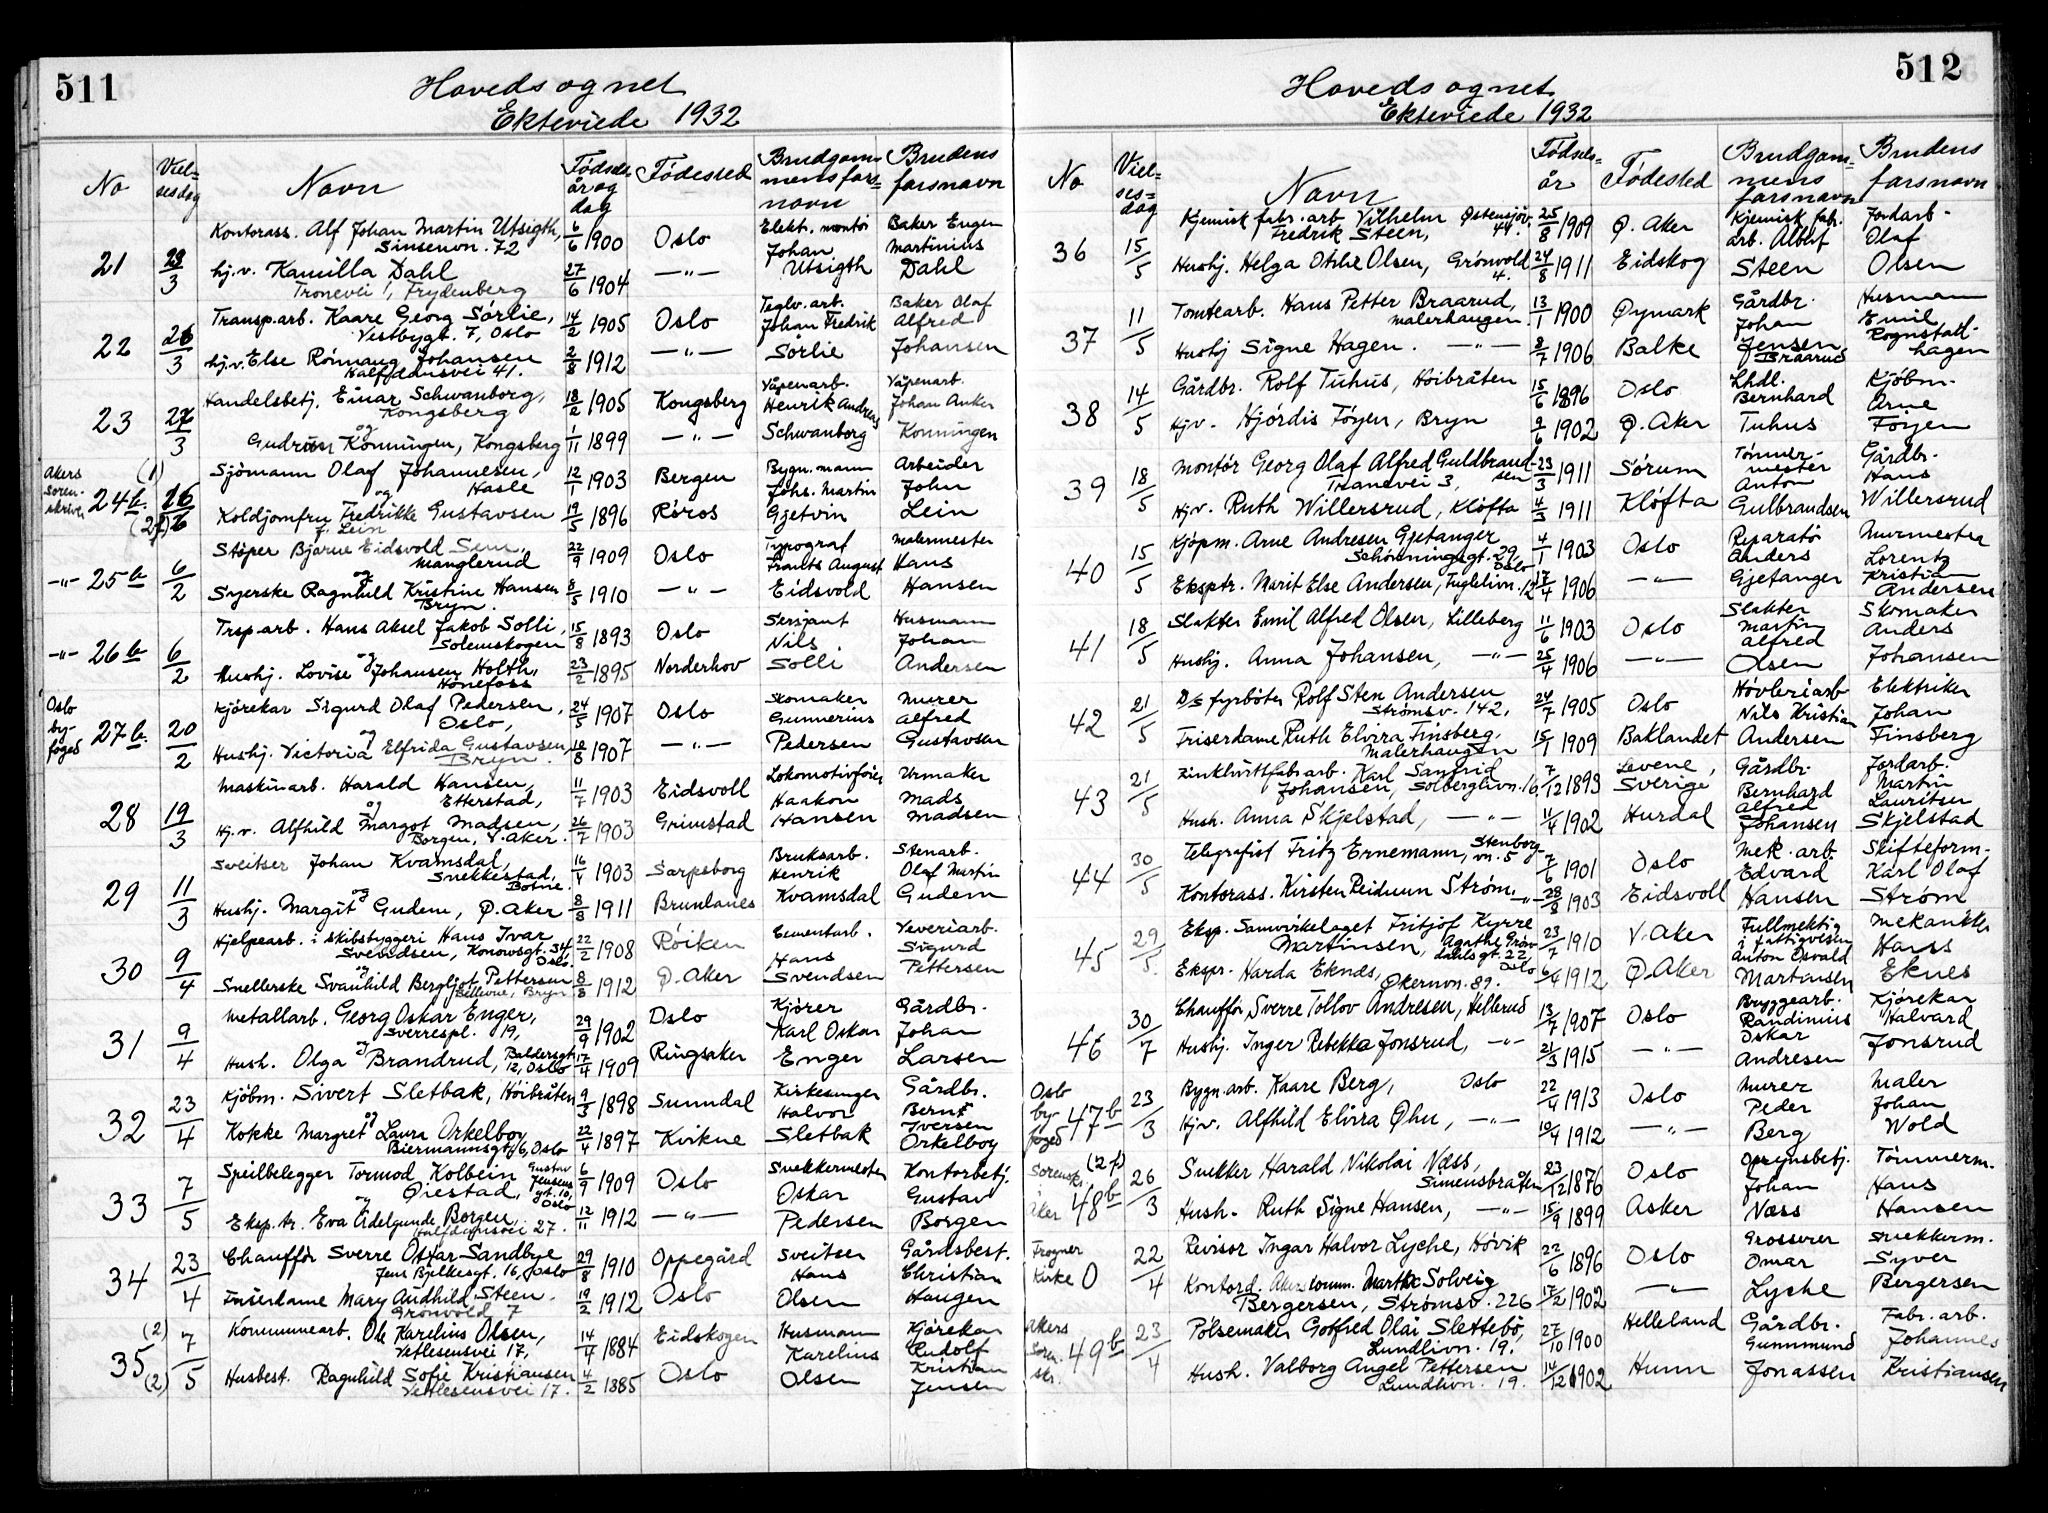 511
Hovedsognet
Ekteviede 1932
No
Viel-
sesdag
Navn
Fødsels
år og
dag
Fødested
Brudgom-
mens fars-
navn
Brudens
farsnavn
21
28/3
Kontorass. Alf Johan Martin Utsigth, 6/6 1900 Oslo Elekt. montør Baker Eugen
Sinsenvn. 72 Johan Martinius
hj.v. Kamilla Dahl 27/6 1904 —"— Utsigth Dahl
Tronevei 1, Frydenberg
22
26/3
Transp.arb. Kaare Georg Sørlie, 14/2 1905 Oslo Teglv.arb. Baker Olaf
Vestbygt. 7, Oslo Johan Fredrik Alfred
hj.v. Else Rönnaug Johansen 2/8 1912 —"— Sørlie Johansen
Halfdansvei 41.
23
27/3
Handelsbetj. Einar Schwanborg, 18/2 1905 Kongsberg Våpenarb. Våpenarb.
Kongsberg Henrik Andreas Johan Anker
og
Gudrun Konningen, Kongsberg 1/11 1899 —"— Schwanborg Konningen
Akers
soren-
skriver
24 b. (1)
(27)
Sjömann Olaf Johannesen, 12/1 1903 Bergen Bygn.mann Arbeider
Hasle Johs. Martin John
og
Koldjomfru Fredrikke Gustavsen 19/5 1896 Röros Gjetvin Lein
f. Lein
—"— 25 b.
6/2
Støper Bjarne Eidsvold Sem, 22/9 1909 Oslo Typograf Malermester
Manglerud Frants August Hans
og
Syerske Ragnhild Kristine Hansen 8/5 1910 —"— Eidsvold Hansen
Bryn.
—"— 26 b.
6/2
Trsp.arb. Hans Aksel Jakob Solli, 15/8 1893 Oslo Sersjant Husmann
Solemskogen Nils Johan
og
Hushj. Lovise Johansen Holth, 23/2 1895 Norderhov Solli Andersen
Hönefoss
Oslo
by-
foged
27 b.
20/2
Kjörekar Sigurd Olaf Pedersen, 24/5 1907 Oslo Skomaker Murer
Oslo, Gunnerius Alfred
og
Hushj. Victoria Elfrida Gustavsen, 10/8 1907 —"— Pedersen Gustavsen
Bryn.
28
19/3
Maskinarb. Harald Hansen, 11/7 1903 Eidsvoll Lokomotivfører Urmaker
Etterstad, Haakon Mads
og
Hj.v. Alfhild Margot Madsen, 26/7 1903 Grimstad Hansen Madsen
Borgen, Ø.Aker.
29
11/3
Sveitser Johan Kvamsdal, 16/4 1903 Sarpsborg Bruksarb. Stenarb.
Snekkestad, Henrik Olaf Martin
Botne.
og
Hushj. Margit Gudem, Ø.Aker 8/8 1911 Brunlanes Kvamsdal Gudem
30
9/4
Hjelpearb. i skibsbyggeri Hans Ivar 22/2 1908 Röiken Cementarb. Veveriarb.
Svendsen, Konowsgt. 34, Hans Sigurd
Oslo.
og
Snellerske Svanhild Bergljot Pettersen 8/8 1912 Ø.Aker Svendsen Pettersen
Bellevue, Bryn
31
9/4
Metallarb. Georg Oskar Enger, 29/9 1902 Oslo Kjører Gårdbr.
Sverrespl. 19, Karl Oskar Johan
og
Hush. Olga Brandrud, Baldersgt. 17/4 1909 Ringsaker Enger Larsen
12, Oslo
32
23/4
Kjöbm. Sivert Sletbak, Höibråten 9/3 1898 Sunndal Kirkesanger Gårdbr.
og Halvor Bernt
Kokke Margret Laura Orkelbog 22/4 1897 Kvikne Sletbak Iversen
Biermannsgt. 6, Oslo Orkelbog
33
7/5
Speilbelegger Tormod Kolbein Gustav 6/9 1909 Oslo Snekkermester Kontorbetj.
Øiestad, Jensens gt. 10, Oslo Oskar Gustav
og
Eksp.tr. Eva Adelgunde Borgen, 12/11 1912 —"— Pedersen Borgen
Halfdansvei 27.
34
23/4
Chauffør Sverre Oskar Sandbye 29/8 1910 Oppegård Sveitser Gårdsbest.
Jens Bjelkesgt. 16, Oslo Hans Christian
Friserdame Mary Audhild Steen. 19/2 1912 Oslo Olsen Haugen
Grönvold 7
35 (2)
(2)
7/5
Kommunearb. Ole Karelius Olsen, 14/7 1884 Eidskogen Husmann Kjörekar
Vetlesensvei 17, Karelius Rudolf
Husbest. Ragnhild Sofie Kristiansen 4/2 1885 Oslo Olsen Kristian
Vetlesensvei 17. Jensen
512
Hovedsognet
Ekteviede 1932
No
Viel-
ses-
dag
Navn
Fødsels-
år
Fødested
Brudgom-
mens
farsnavn
Brudens
farsnavn
36
15/5
Kjemisk fabr. arb Vilhelm Østensjöv. 25/8 1909 Ø. Aker Kjemisk fabr. Jordarb.
Fredrik Steen, 44. arb. Albert Olaf
Hushj. Helga Otilie Olsen, Grönvold 24/8 1911 Eidskog Steen Olsen
4.
37
11/5
Tomtearb. Hans Petter Braarud, 13/1 1900 Øymark Gårdbr. Husmann
Malerhaugen. Johan Emil
Hushj Signe Hagen. —"— 8/7 1906 Balke Jensen Rognstad-
Braarud hagen
38
14/5
Gårdbr. Rolf Tuhus, Höibråten 15/6 1896 Oslo Lhdl. Kjöbm.
Bernhard Arne
Hjv. Hjördis Föyen, Bryn 9/6 1902 Ø.Aker Tuhus Föyen
39
18/5
Montör Georg Olaf Alfred Guldbrand- 23/3 1911 Sörum Tømmer- Gårdbr.
Tranevei 3, sen mester Hans
Anton
Hjv. Ruth Willersrud, Klöfta 4/3 1911 Klöfta Gulbrandsen Willersrud
40
15/5
Kjöpm. Arne Andresen Gjetanger 4/1 1903 Oslo Reparatø Murmester
Schönningsgt. 29, Oslo Anders Lorentz
Eksptr. Marit Else Andersen, Fuglelivn. 12 17/4 1906 —"— Gjetanger Kristian
Andersen
41
18/5
Slakter Emil Alfred Olsen, Lilleberg 11/6 1903 Oslo Slakter Skomaker
Martin Anders
Alfred
Hushj. Anna Johansen, —"— 25/4 1906 —"— Olsen Johansen
42
21/5
D/s fyrböter Rolf Sten Andersen 24/7 1905 Oslo Høvleriarb Elektriker
Strømsv. 142, Nils Kristian Johan
Friserdame Ruth Elvira Finsberg, 15/1 1909 Baklandet Andersen Finsberg
Malerhaugen
43
21/5
Zinkhvittfabr.arb. Karl Sanfrid 7/12 1893 Levene, Gårdbr. Jordarb.
Johansen, Solberglivn. 16. Sverige Bernhard Martin
Alfred Lauritsen
Hush. Anna Skjelstad, —"— 11/4 1902 Hurdal Johansen Skjelstad
44
30/5
Telegrafist Fritz Ernemann, Stenborg- 7/6 1901 Oslo Mek. arb. Skifteform.
vn. 5 Edvard Karl Olaf
Kontorass. Kirsten Reidunn Strøm. —"— 28/8 1903 Eidsvoll Hansen Strøm
45
29/5
Eksp. Samvirkelaget Fritjof Kyrre 23/7 1910 V.Aker Fullmektig Mekaniker
Martinsen, Agathe Grön- i fattigvesen Hans
dahlsgt. 22 Oslo Anton Osvald
Ekspr. Harda Eknes, 6/4 1912 Ø.Aker Martinsen Eknes
Økernvn. 89.
46
30/7
Chauffør, Sverre Tollov Andresen, Hellerud 13/7 1907 Oslo Bryggearb. Kjörekar
Randinius Halvard
Oskar
Hushj. Inger Rebekka Jonsrud, —"— 21/3 1915 —"— Andresen Jonsrud
Oslo
by-
foged
47 b
23/3
Bygn.arb. Kaare Berg, Oslo 22/4 1913 Oslo Murer Maler
Peder Johan
Hjv. Alfhild Elvira Øhn, —"— 10/4 1912 —"— Berg Wold
Sorenskr.
i
Aker
48 b (2f)
26/3
Snekker Harald Nikolai Næss, 23/12 1876 Oslo Opsynsbetj. Tömmerm.
Simensbråten Johan Hans
Hush. Ruth Signe Hansen, —"— 15/9 1899 Asker Næss Hansen
Frogner
Kirke
0
22/4
Revisor Ingar Halvor Lyche, Hövik 22/6 1896 Oslo Grosserer Snekkerm.
Omar Syver
Kontord. Aker komm. Marthe Solveig 17/2 1902 —"— Lyche Bergersen
Bergersen, Strømsv. 226
Akers
Soren-
skr.
49 b
23/4
Pölsemaker Gotfred Olai Slettebö, 27/10 1900 Helleland Gårdbr. Fabr. arb.
Lundlivn. 19. Gunnmund Johannes
Hush. Valborg Angel Pettersen 14/12 1902 Hunn Jonassen Kristiansen
Lundlivn. 19.